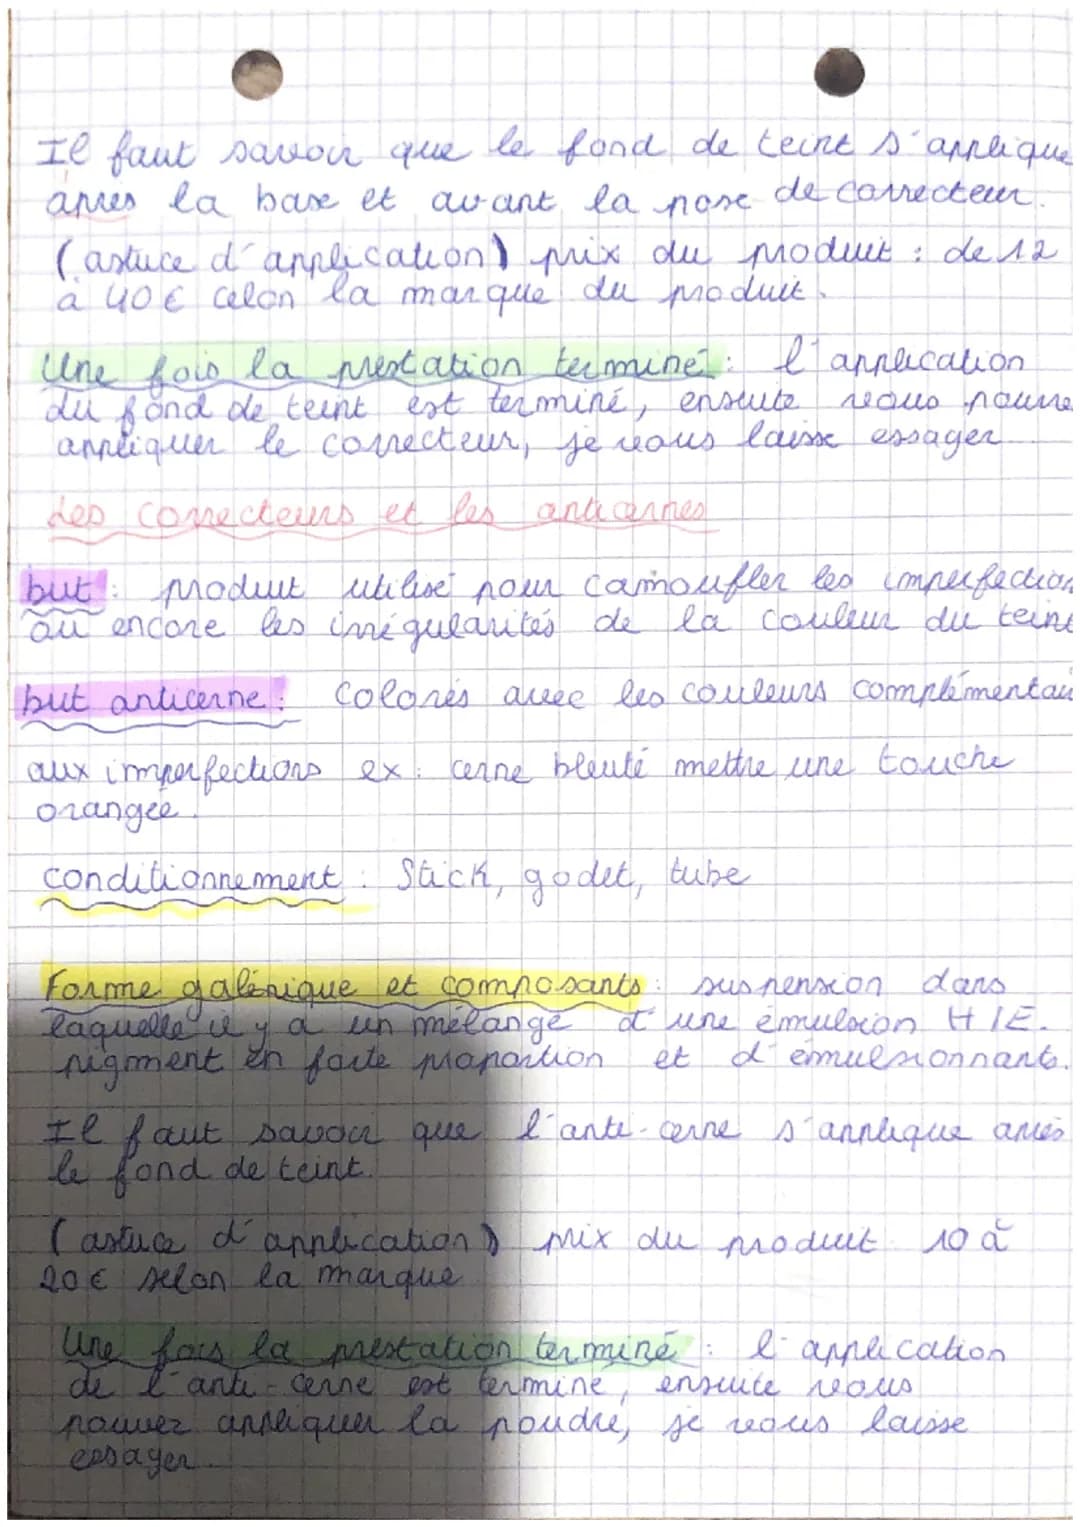 Il faut savoir que le fond de teint s'applique
après la base et avant la pose de correcteur.
(astuce d'application) prix du produit : de 12
à 40€ celon la marque du produit.
Une fois la prestation terminé : l'application
du fond de teint est terminé, ensuite vous pouve
appliquer le correcteur, je vous laisse essayer
Les correcteurs et les anticernes
but : produit utilisé pour camoufler les imperfection
ou encore les irrégularités de la couleur du teint
but anticerne : Colorés avec les couleurs complémentai
aux imperfections ex : cerne bleuté mettre une touche
orangée.
conditionnement : Stick, godet, tube
Forme galénique et composants : suspension dans
laquelle il y a un mélange d'une émulsion H/E.
pigment en forte proportion et d'émulsionnants.
Il faut savoir que l'anti-cerne s'applique après
le fond de teint.
(astuce d'application) prix du produit 10 à
20€ selon la marque
Une fois la prestation terminé : l'application
de l'anti-cerne est terminé, ensuite vous
pouvez appliquer la poudre, je vous laisse
essayer.